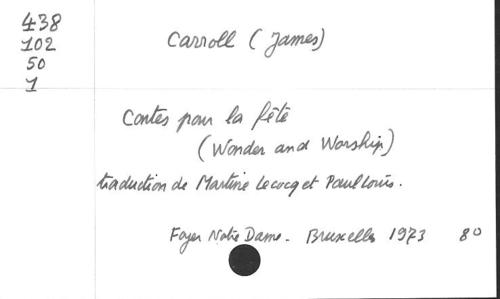 438
102
50
1
Carroll (James)
Contes pour la fête
(Wonder and Worship)
traduction de Martine Lecocq et Paul Louis.
Foyer Notre Dame - Bruxelles 1973 80